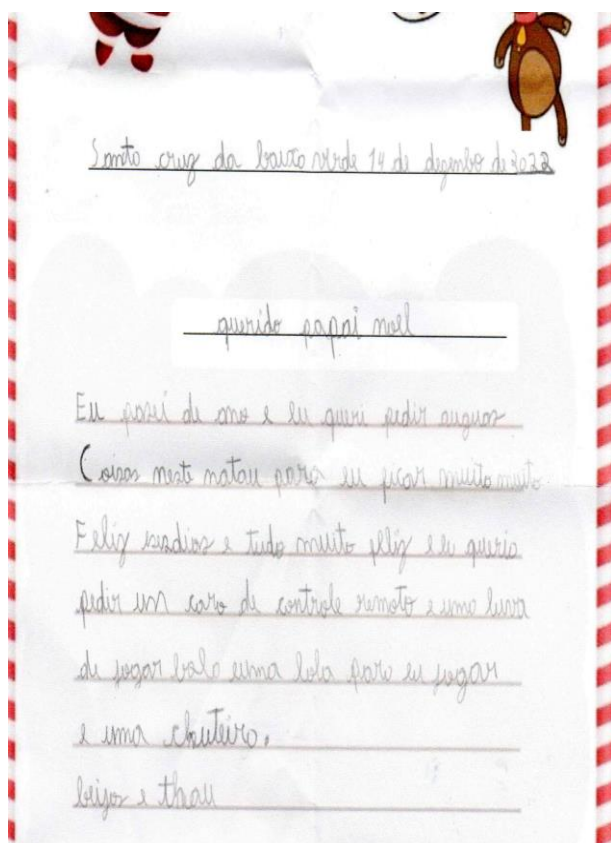 Santa cruz da baixa verde 14 de dezembo de 2022
querido papai noel
Eu pasei de ano e eu queri pedir auguas
Coisas neste natau para eu ficar muito muito
Feliz esadias e tudo muito feliz e eu queria
pedir um caro de controle remoto e uma luva
de jogar bola euma bola para eu jogar
e uma chuteira.
beijos e thau